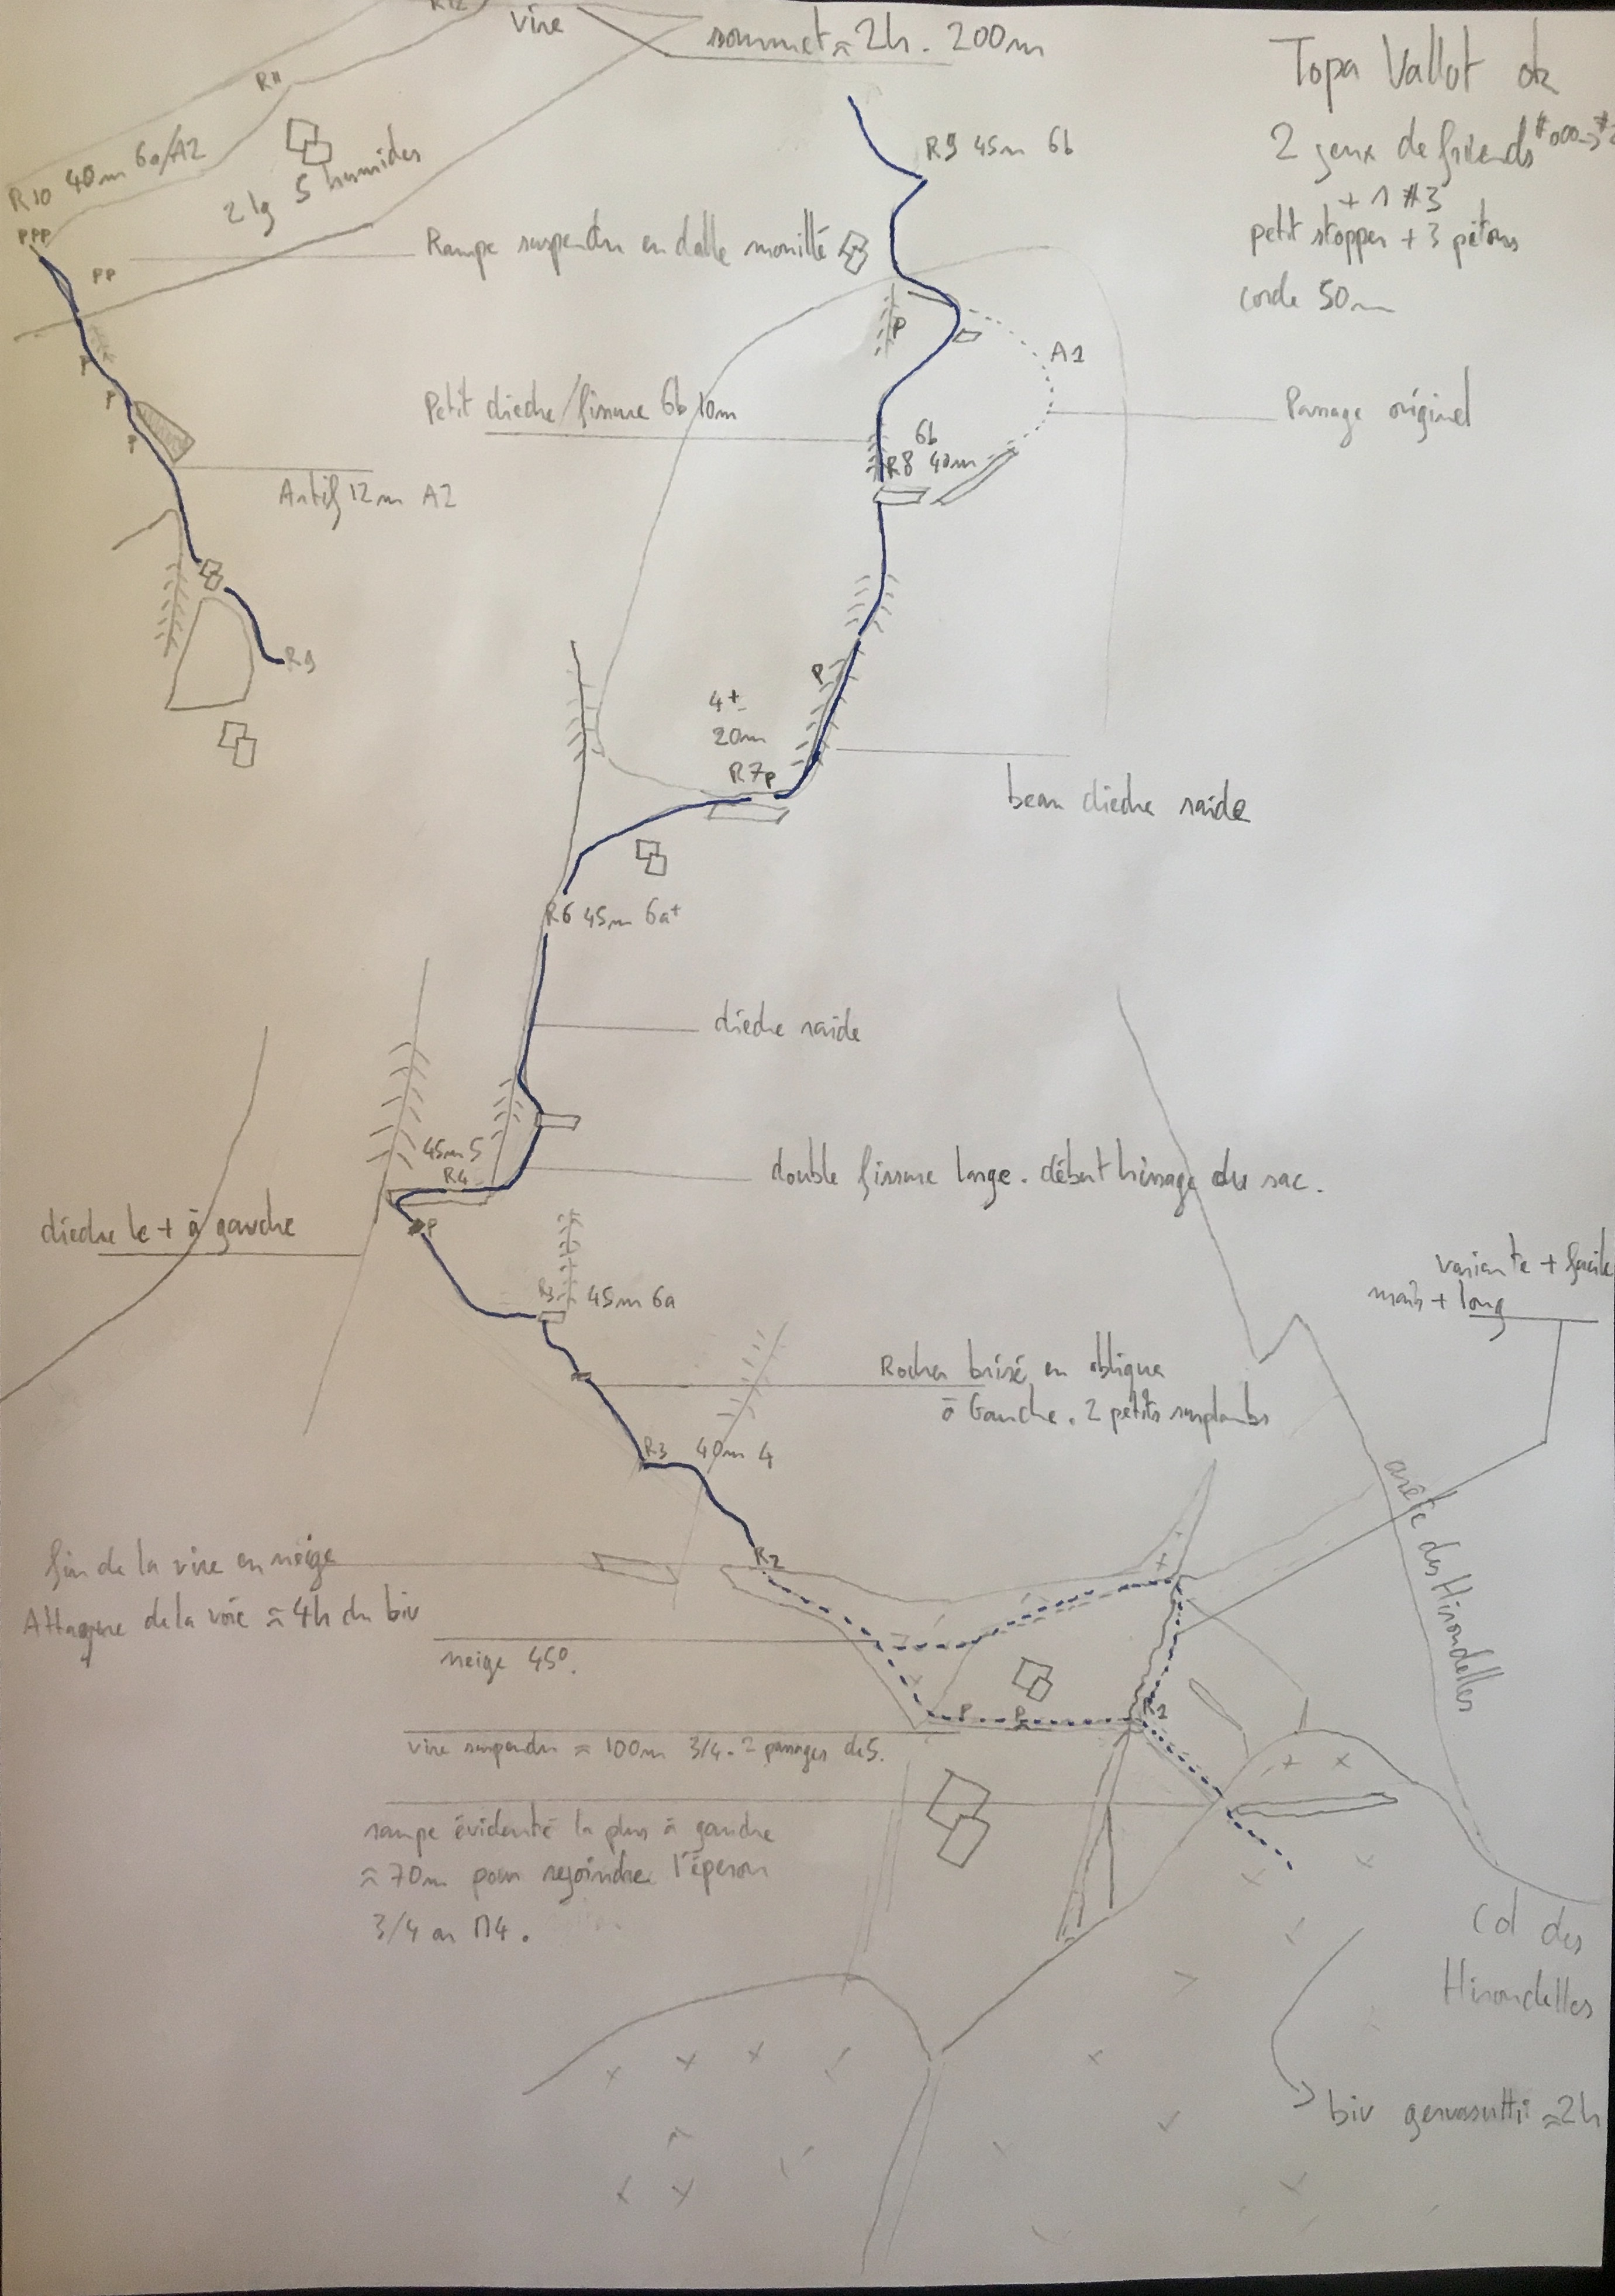 R12
vire
sommet ≈ 2h. 200m
Topo Vallot ok
2 jeux de friends #000→3#
+ 1 #3
petit stopper + 3 pitons
corde 50m
R11
R10 40m 6a/A2
2 lg 5 humides
PPP
PP
Rampe suspendu en dalle mouillé
R9 45m 6b
P
A1
Passage originel
Petit diedre/fissure 6b 10m
6b
R8 40m
P
P
P
Artif 12m A2
R9
P
4+
20m
R7 P
beau diedre raide
R6 45m 6a+
diedre raide
45m 5
R4
double fissure large. début hissage du sac.
diedre le + à gauche
P
R3 45m 6a
variante + facile
mais + long
Rocher brisé en oblique
à Gauche. 2 petits surplombs
R3 40m 4
arête des Hirondelles
R2
fin de la vire en neige
Attaque de la voie ≈ 4h du biv
neige 45°.
P P
R1
vire suspendu ≈ 100m 3/4. 2 passages de 5.
rampe évidente la plus à gauche
≈ 70m pour rejoindre l'éperon
3/4 ou M4.
Col des
Hirondelles
biv gervasutti ≈ 2h